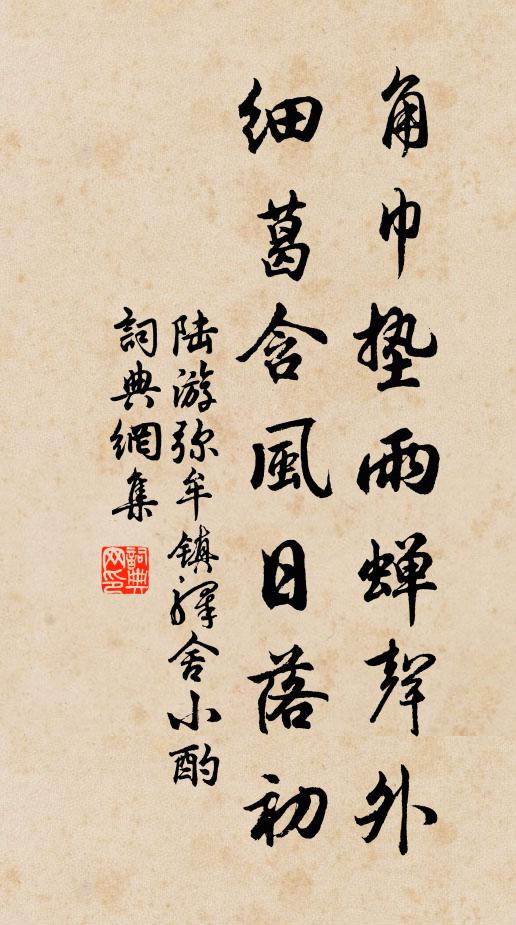 角巾墊雨蟬聲外
細葛含風日落初
陸游弥牟鎮驛舍小酌
詞典網集
詞典網印